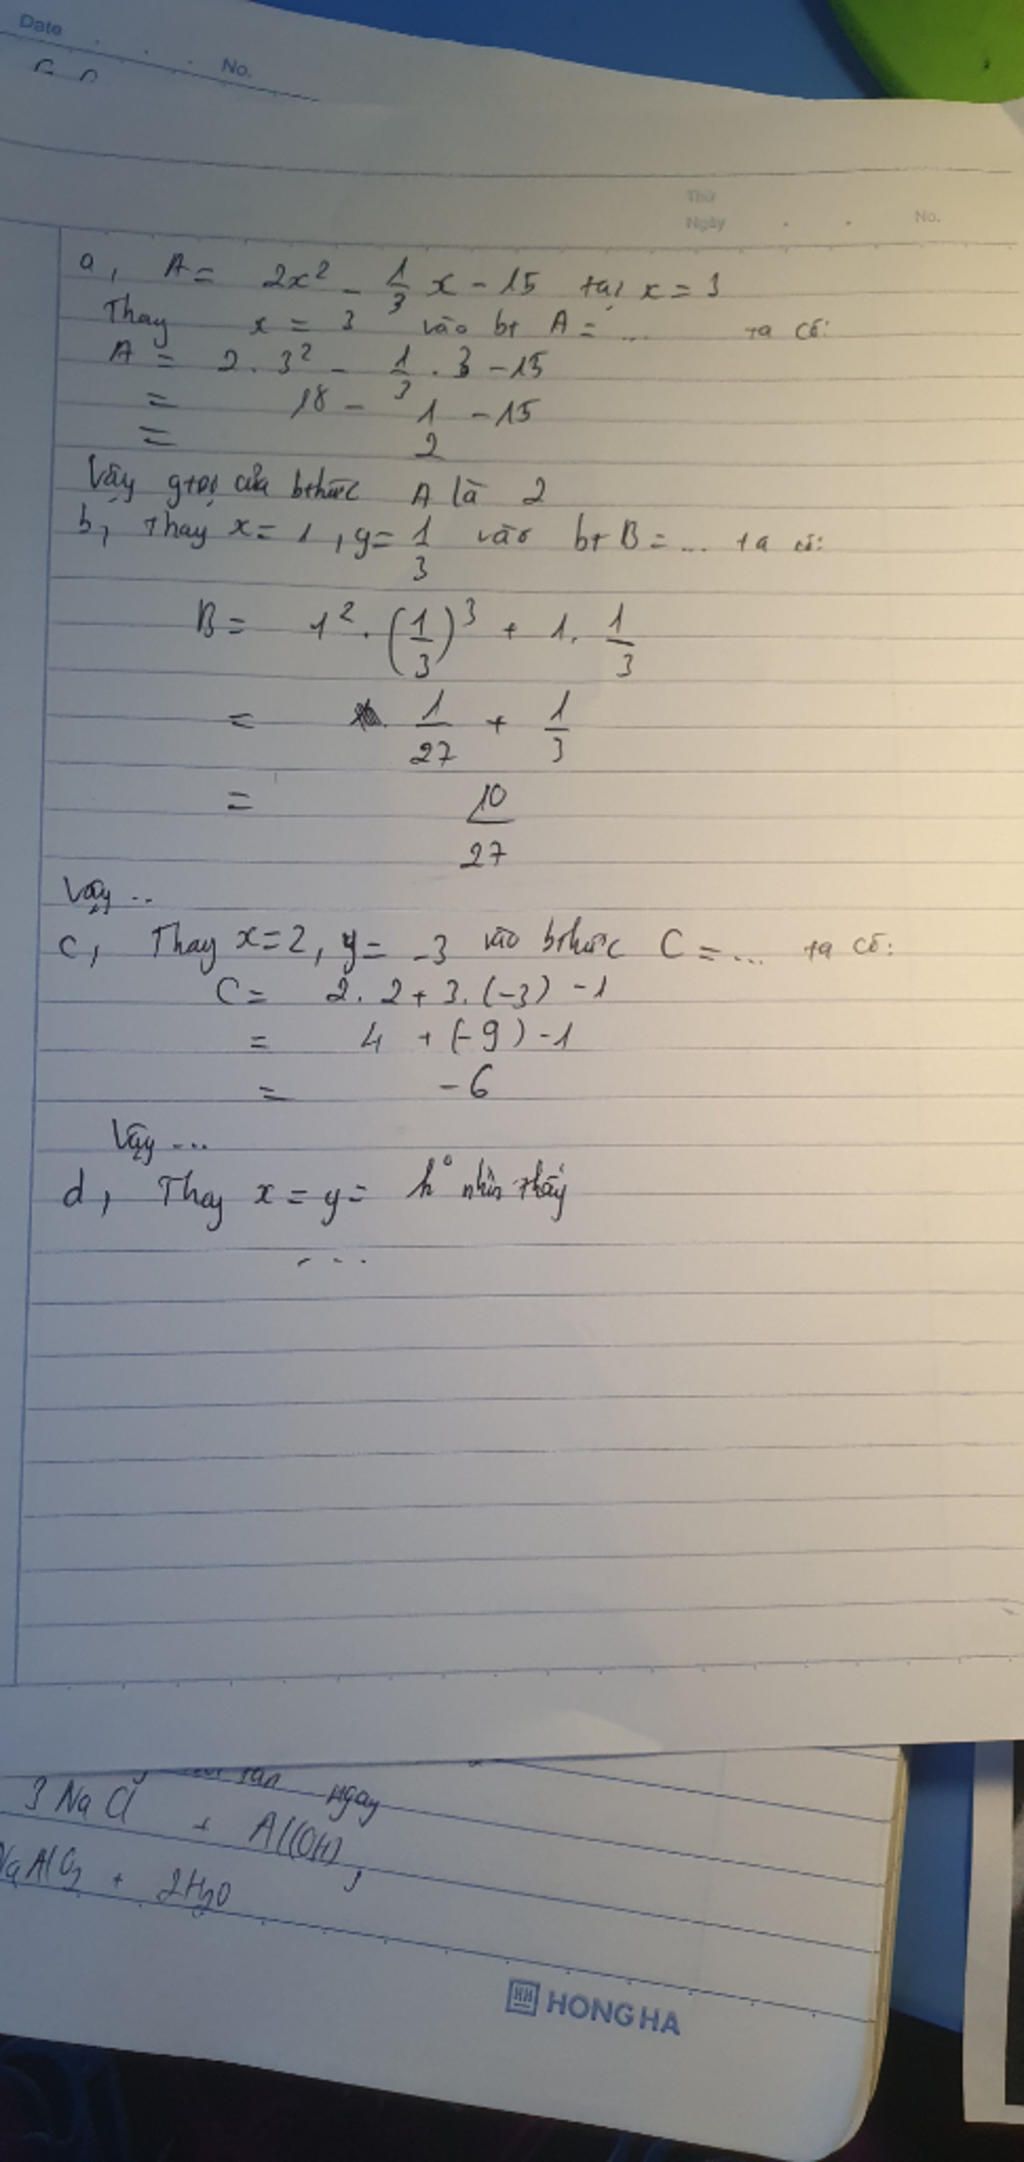 Date
No.
Thứ
Ngày
No.
a, A = 2x² - 1/3 x - 15 tại x = 3
Thay x = 3 vào bt A = ... ta có:
A = 2. 3² - 1/3 . 3 - 15
= 18 - 1 - 15
= 2
Vậy gtrị của bthức A là 2
b, Thay x = 1, y = 1/3 vào bt B = ... ta có:
B = 1² . (1/3)³ + 1. 1/3
= 1/27 + 1/3
= 10/27
Vậy ..
c, Thay x = 2, y = -3 vào bthức C = ... ta có:
C = 2. 2 + 3. (-3) - 1
= 4 + (-9) - 1
= -6
Vậy ...
d, Thay x = y = k° nhìn thấy
...
ngay
3 NaCl + Al(OH)3
NaAlO2 + 2H2O
HONG HA